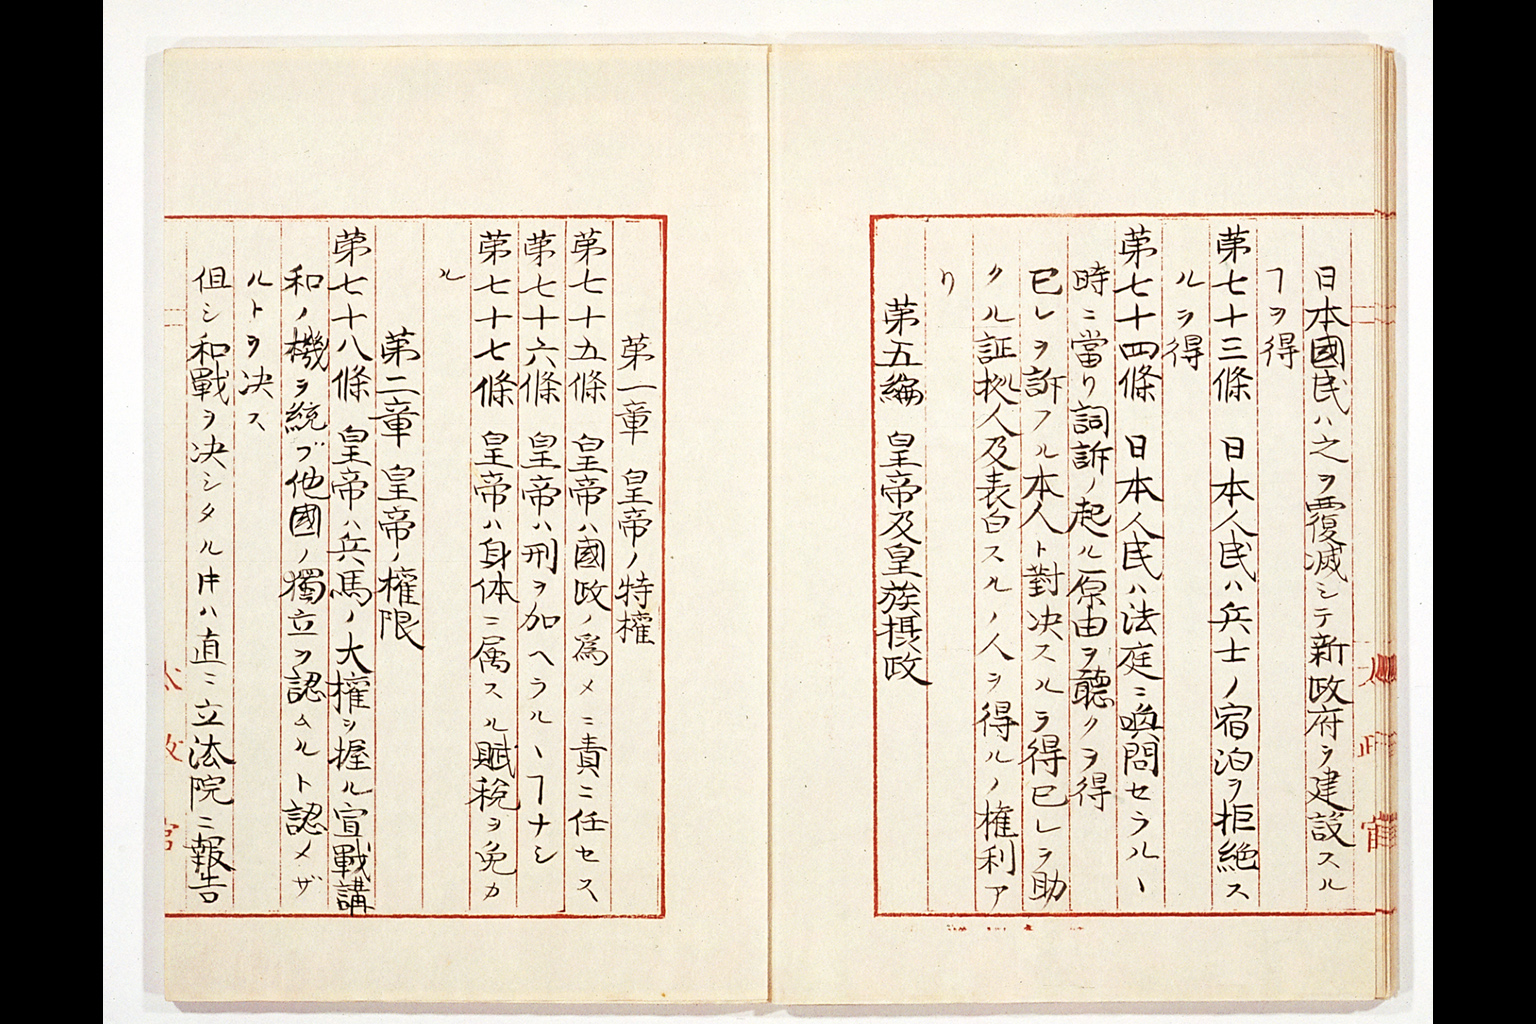 日本國民ハ之ヲ覆滅シテ新政府ヲ建設スル
ヿヲ得
第七十三條 日本人民ハ兵士ノ宿泊ヲ拒絶ス
ルヲ得
第七十四條 日本人民ハ法庭ニ喚問セラルヽ
時ニ當リ詞訴ノ起ル原由ヲ聽クヲ得
已レヲ訴フル本人ト對决スルヲ得已レヲ助
クル証拠人及表白スルノ人ヲ得ルノ権利ア
リ
第五編 皇帝及皇族摂政
第一章 皇帝ノ特權
第七十五條 皇帝ハ國政ノ為メニ責ニ任セス
第七十六條 皇帝ハ刑ヲ加ヘラルヽヿナシ
第七十七條 皇帝ハ身体ニ属スル賦税ヲ免カ
ル
第二章 皇帝ノ權限
第七十八條 皇帝ハ兵馬ノ大權ヲ握ル宣戰講
和ノ機ヲ統ブ他國ノ獨立ヲ認ムルト認メザ
ルトヲ决ス
但シ和戰ヲ决シタル𪜈ハ直ニ立法院ニ報告
太政官